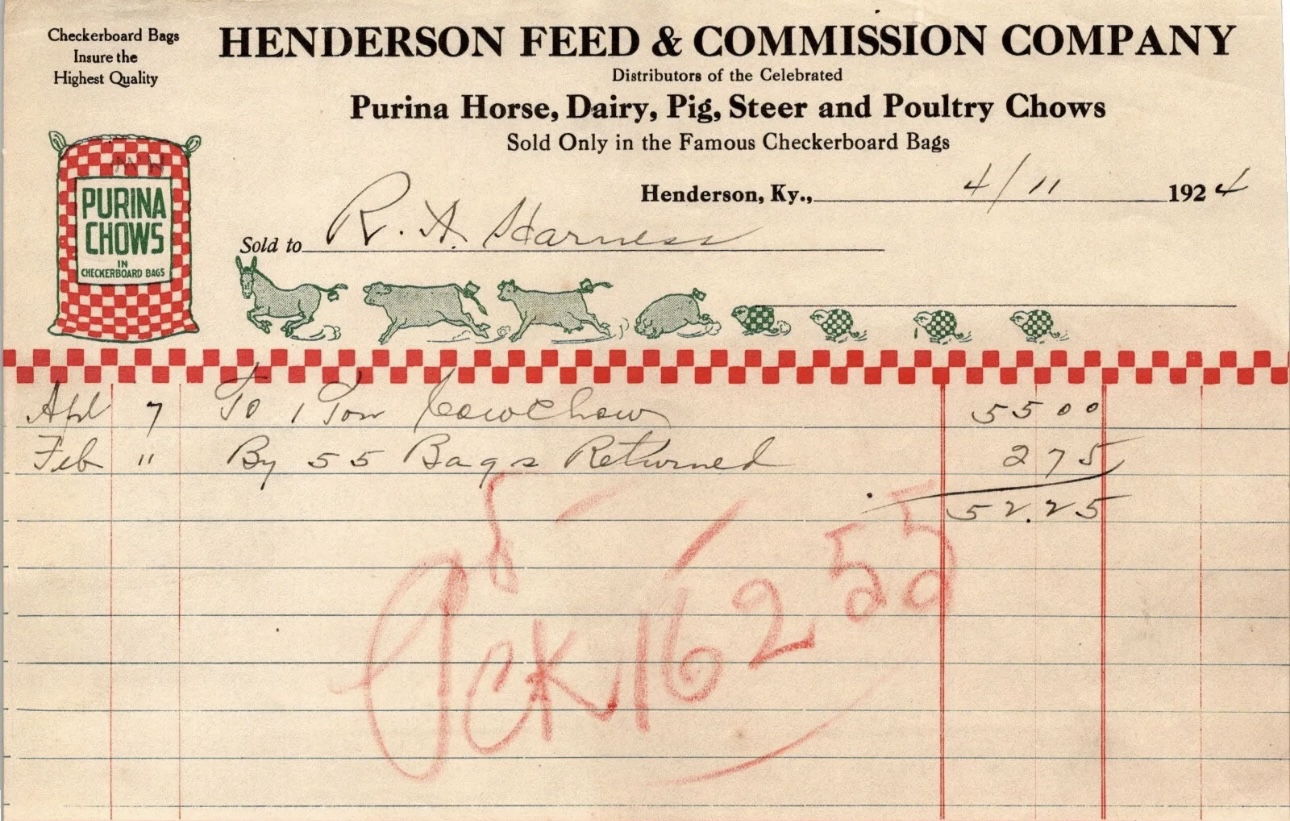 Checkerboard Bags
Insure the
Highest Quality
HENDERSON FEED & COMMISSION COMPANY
Distributors of the Celebrated
Purina Horse, Dairy, Pig, Steer and Poultry Chows
Sold Only in the Famous Checkerboard Bags
PURINA
CHOWS
IN
CHECKERBOARD BAGS
Henderson, Ky., 4/11 1924
Sold to R. A. Harness
Apl 7 To 1 Ton Cow Chow 55 00
Feb " By 55 Bags Returned 2 75
52.25
CK 16255